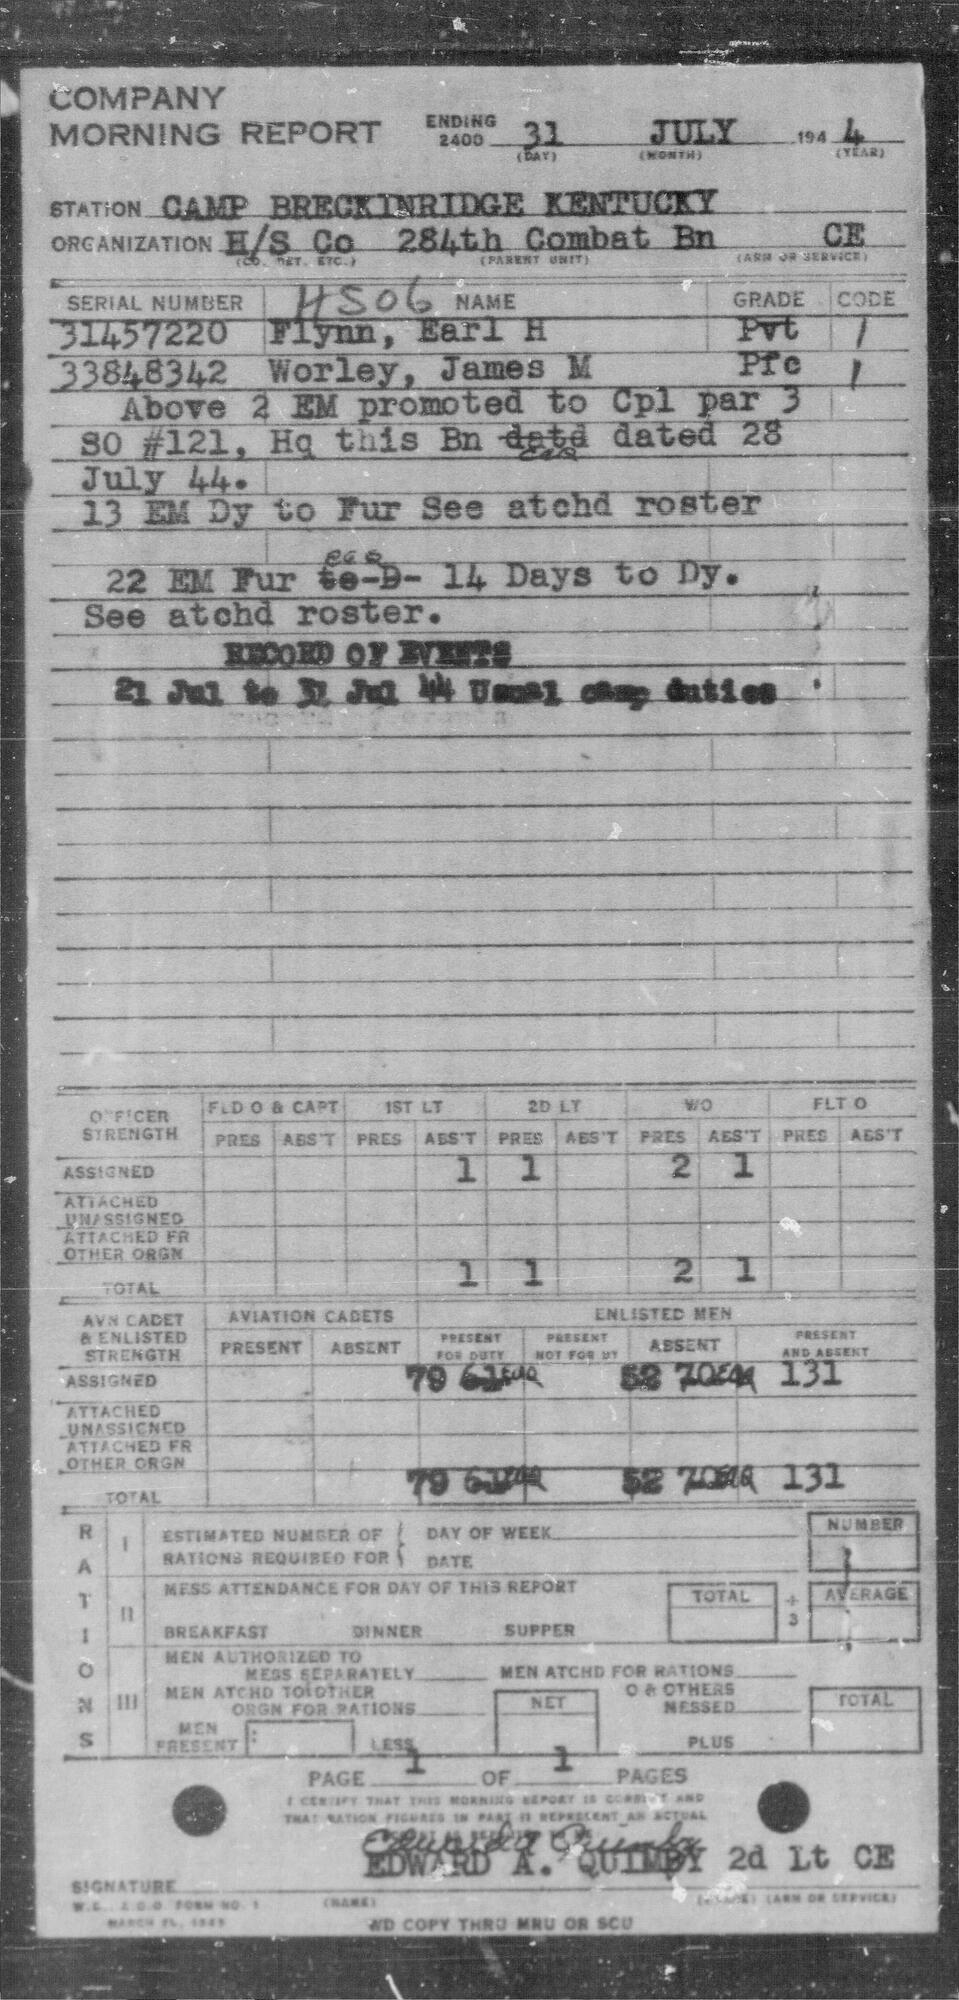 COMPANY
MORNING REPORT ENDING 2400 31 JULY 194 4
(DAY) (MONTH) (YEAR)
STATION CAMP BRECKINRIDGE KENTUCKY
ORGANIZATION H/S Co 284th Combat Bn CE
(CO. DET. ETC.) (PARENT UNIT) (ARM OR SERVICE)
SERIAL NUMBER HS06 NAME GRADE CODE
31457220 Flynn, Earl H Pvt /
33848342 Worley, James M Pfc /
Above 2 EM promoted to Cpl par 3
SO #121, Hq this Bn datd dated 28
EAQ
July 44.
13 EM Dy to Fur See atchd roster
22 EM Fur to-D- 14 Days to Dy.
See atchd roster.
RECORD OF EVENTS
21 Jul to 31 Jul 44 Usual camp duties
OFFICER STRENGTH FLD O & CAPT 1ST LT 2D LT W/O FLT O
PRES ABS'T PRES ABS'T PRES ABS'T PRES ABS'T PRES ABS'T
ASSIGNED 1 1 2 1
ATTACHED UNASSIGNED
ATTACHED FR OTHER ORGN
TOTAL 1 1 2 1
AVN CADET & ENLISTED STRENGTH AVIATION CADETS ENLISTED MEN
PRESENT ABSENT PRESENT FOR DUTY PRESENT NOT FOR DY ABSENT PRESENT AND ABSENT
ASSIGNED 79 61 EAQ 52 70 EAQ 131
ATTACHED UNASSIGNED
ATTACHED FR OTHER ORGN
TOTAL 79 61 EAQ 52 70 EAQ 131
RATIONS
I ESTIMATED NUMBER OF RATIONS REQUIRED FOR { DAY OF WEEK NUMBER
DATE
II MESS ATTENDANCE FOR DAY OF THIS REPORT TOTAL ÷ 3 AVERAGE
BREAKFAST DINNER SUPPER
III MEN AUTHORIZED TO MESS SEPARATELY MEN ATCHD FOR RATIONS
MEN ATCHD TO OTHER ORGN FOR RATIONS NET O & OTHERS MESSED TOTAL
MEN PRESENT LESS PLUS
PAGE 1 OF 1 PAGES
I CERTIFY THAT THIS MORNING REPORT IS CORRECT AND
THAT RATION FIGURES IN PART II REPRESENT AN ACTUAL
Edward A Quimby
EDWARD A. QUIMBY 2d Lt CE
SIGNATURE
W.D., A.G.O. FORM NO. 1 (NAME) (GRADE) (ARM OR SERVICE)
WD COPY THRU MRU OR SCU